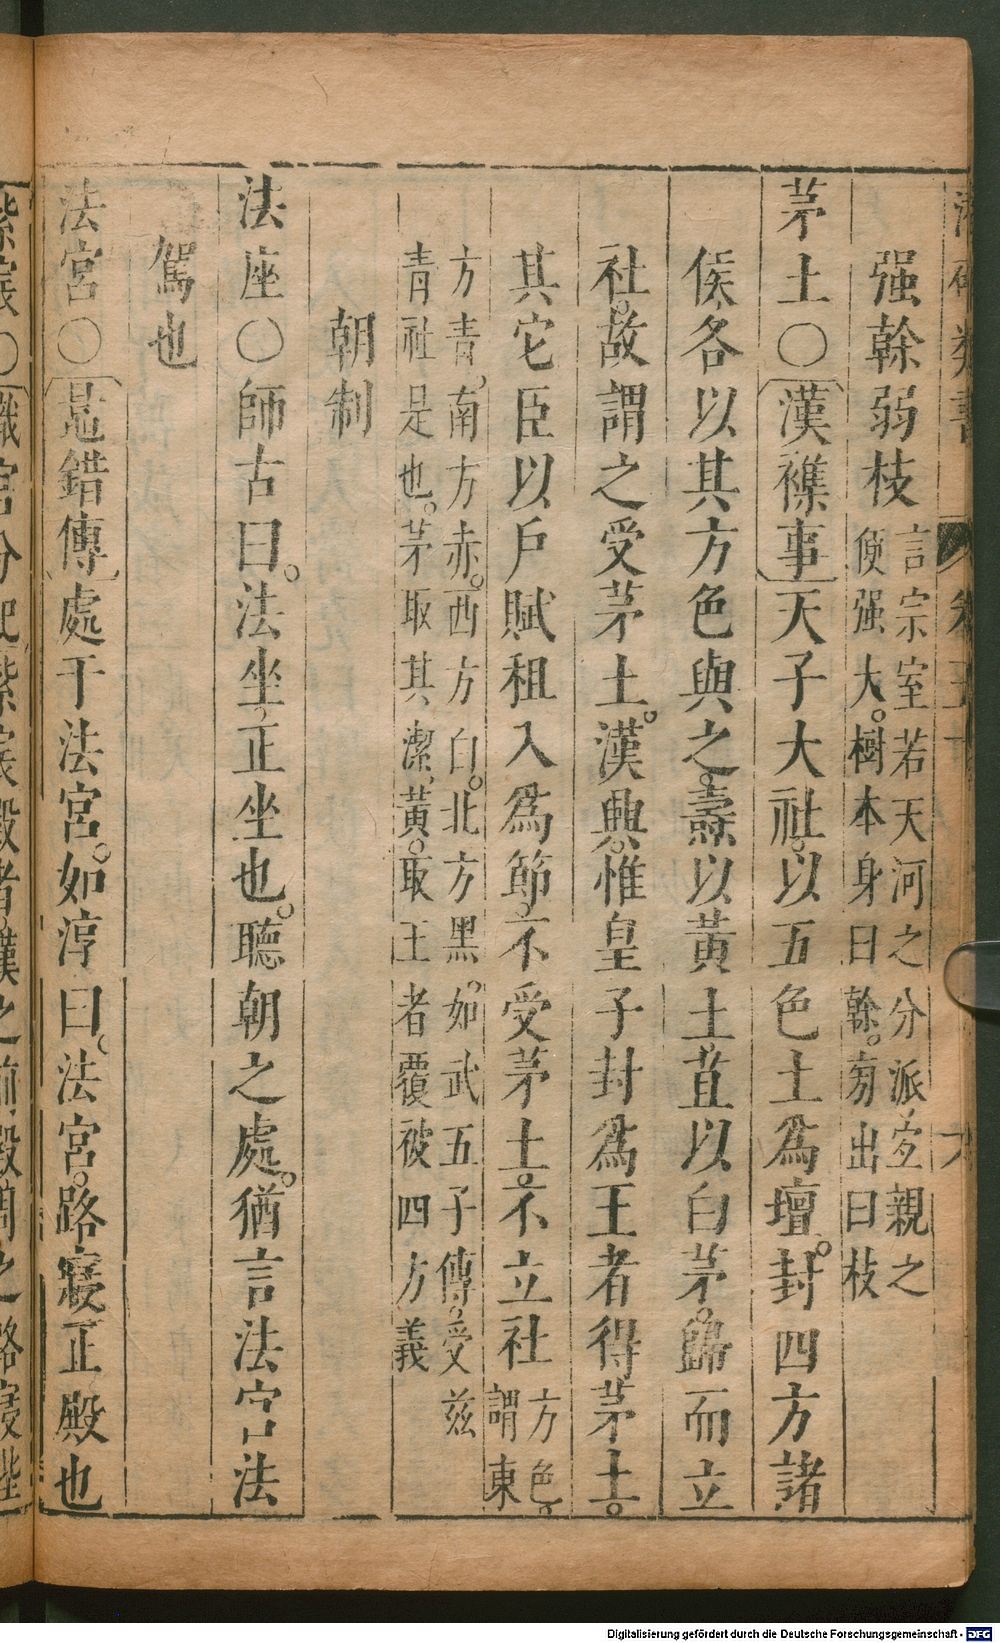 强幹弱枝言宗室若天河之分派宜親之使强大。樹本身曰幹。旁出曰枝
茅土〇漢襍事天子大社。以五色土為壇。封四方諸
侯、各以其方色與之。燾以黃土苴以白茅。歸而立
社。故謂之受茅土。漢興。惟皇子封為王者得茅土。
其它臣以戶賦租入為節、不受茅土。不立社方色、謂東
方青、南方赤。西方白。北方黑。如武五子傳。受茲青社是也。茅取其潔、黃。取王者覆被四方義
朝制
法座〇師古曰。法坐、正坐也。聽朝之處。猶言法宮法
駕也
法宮〇鼂錯傳處于法宮。如淳曰、法宮。路寢正殿也
Digitalisierung gefördert durch die Deutsche Forschungsgemeinschaft - DFG